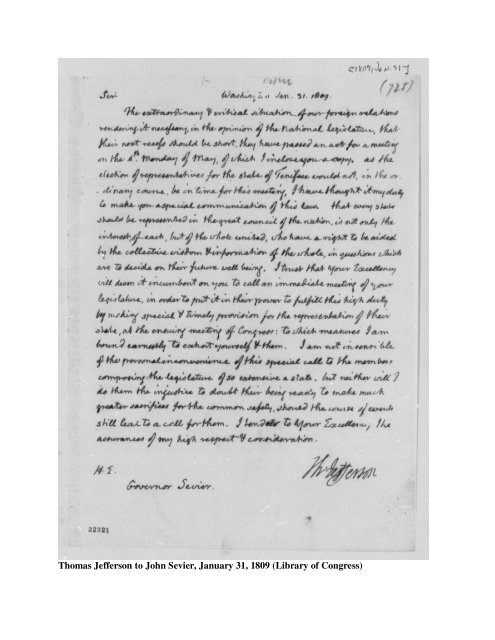 [1809, Jan. 31]
(725)
Sir
Washington Jan. 31. 1809.
The extraordinary & critical situation of our foreign relations
rendering it necessary, in the opinion of the National legislature, that
their next recess should be short, they have passed an act for a meeting
on the 4th Monday of May, of which I inclose you a copy. as the
election of representatives for the state of Tenissee would not, in the or-
-dinary course, be in time for this meeting, I have thought it my duty
to make you a special communication of this law. that every state
should be represented in the great council of the nation, is not only the
interest of each, but of the whole united, who have a right to be aided
by the collective wisdom & information of the whole, in questions which
are to decide on their future well being. I trust that your Excellency
will deem it incumbent on you to call an immediate meeting of your
legislature, in order to put it in their power to fulfill this high duty
by making special & timely provision for the representation of their
state, at the ensuing meeting of Congress: to which measures I am
bound earnestly to exhort yourself & them. I am not insensible
of the personal inconvenience of this special call to the members
composing the legislature of so extensive a state. but neither will I
do them the injustice to doubt their being ready to make much
greater sacrifices for the common safety, should the course of events
still lead to a call for them. I tender to Your Excellency, the
assurances of my high respect & consideration.
Th Jefferson
H.E.
Governor Sevier.
32921
Thomas Jefferson to John Sevier, January 31, 1809 (Library of Congress)